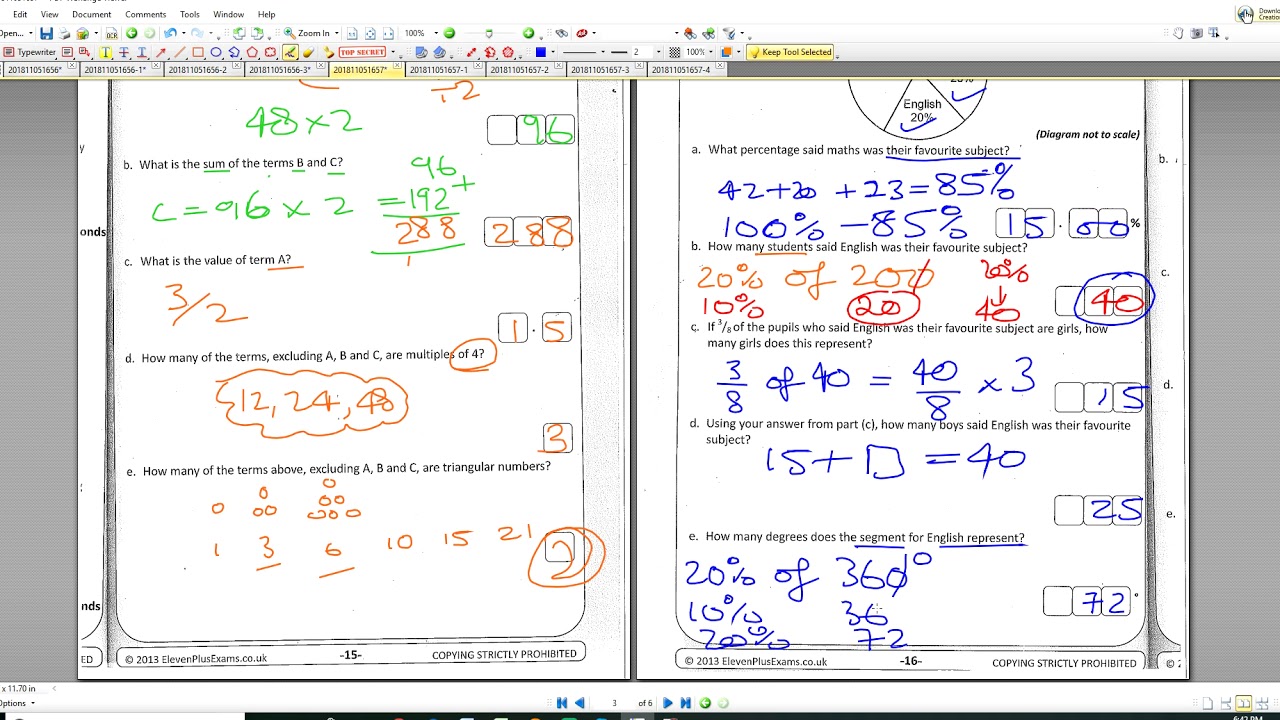 Edit View Document Comments Tools Window Help
Open... Zoom In 100%
Typewriter TOP SECRET 2 100% Keep Tool Selected
201811051656* 201811051656-1* 201811051656-2 201811051656-3* 201811051657* 201811051657-1 201811051657-2 201811051657-3 201811051657-4
48 x 2
96
b. What is the sum of the terms B and C?
96 +
C = 96 x 2 = 192
288
288
1
onds
c. What is the value of term A?
3/2
1 . 5
d. How many of the terms, excluding A, B and C, are multiples of 4?
{12, 24, 48}
3
e. How many of the terms above, excluding A, B and C, are triangular numbers?
1 3 6 10 15 21
2
nds
ED
© 2013 ElevenPlusExams.co.uk -15- COPYING STRICTLY PROHIBITED
English
20%
(Diagram not to scale)
a. What percentage said maths was their favourite subject?
42+20 +23=85%
100% -85% 15.00%
b. How many students said English was their favourite subject?
20% of 200 20%
10% 20 40 40
c. If 3/8 of the pupils who said English was their favourite subject are girls, how
many girls does this represent?
3/8 of 40 = 40/8 x 3
15
d. Using your answer from part (c), how many boys said English was their favourite
subject?
15 + B = 40
25
e. How many degrees does the segment for English represent?
20% of 360°
10% 36
72°
20% 72
© 2013 ElevenPlusExams.co.uk -16- COPYING STRICTLY PROHIBITED
b.
c.
d.
e.
©
x 11.70 in
Options 3 of 6
6:42 PM